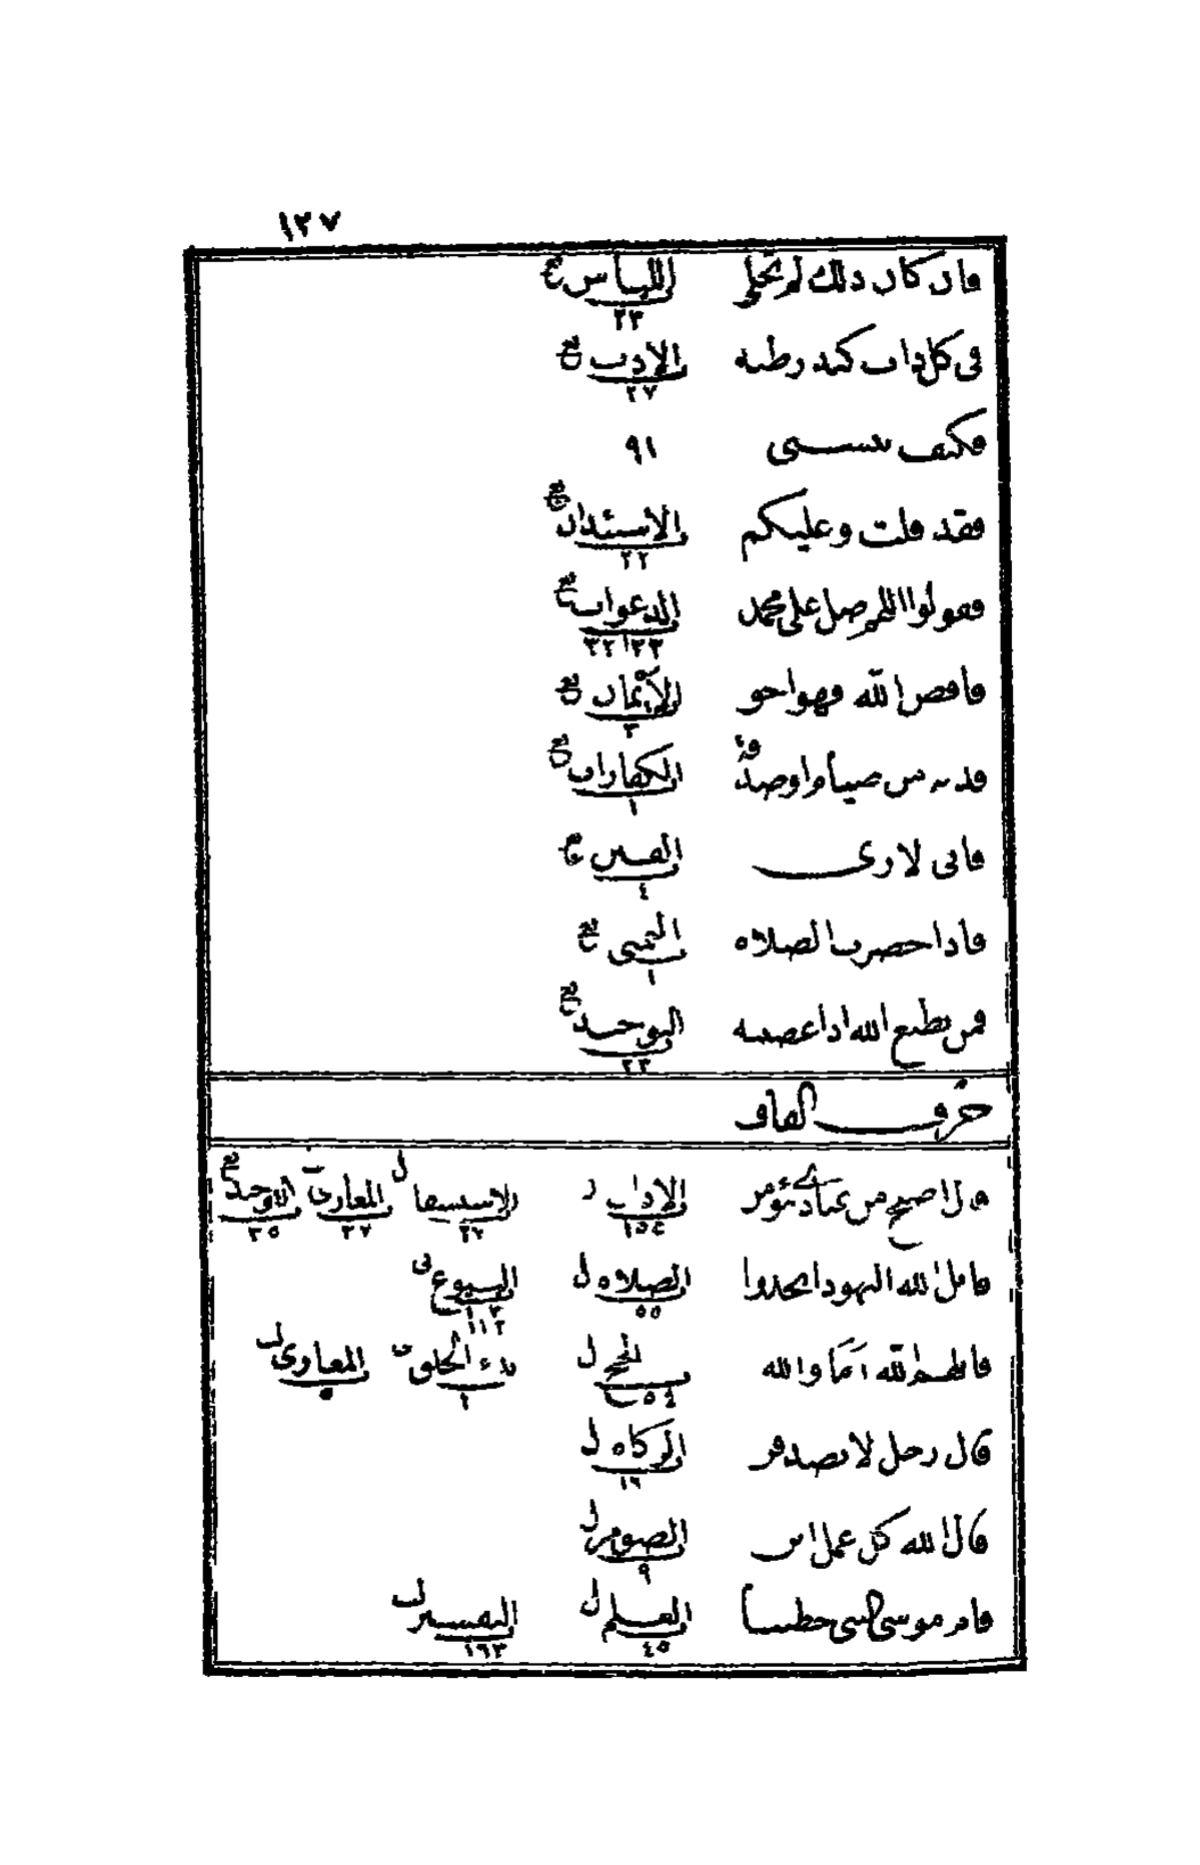 ١٢٧
فان كان ذلك لم تحلي اللباس ع ٢٣
في كل ذات كبد رطبه الادب ع ٢٧
فكيف بنسبي ٩١
فقد قلت وعليكم الاستئذان ع ٢٢
فقولوا اللهم صل على محمد الدعوات ع ٣٢ ٣٣
فاقض الله فهو احق الأيمان ع ٣
فديه من صيام او صدقة الكفارات ع ١
فاني لا ارى الفتن ع ٤
فاذا حضرت الصلاه التمني ع ١
فمن يطيع الله اذا عصيته التوحيد ع ٢٣
حرف القاف
قال اصبح من عبادي مؤمن الاذان ل ١٥٤ الاستسقا ل ٢٧ المغازي ٣٧ التوحيد ع ٣٥
قاتل الله اليهود اتخذوا الصلاه ل ٥٥ البيوع ١٠٣ ١١٢
قاتلهم الله اما والله الحج ل ٥٤ بدء الخلق المغازي
قال رجل لاتصدقن الزكاه ل ١٦
قال الله كل عمل ابن الصوم ل ٩
قام موسى النبي خطيبا العلم ل ٤٥ التفسير ١٦٣